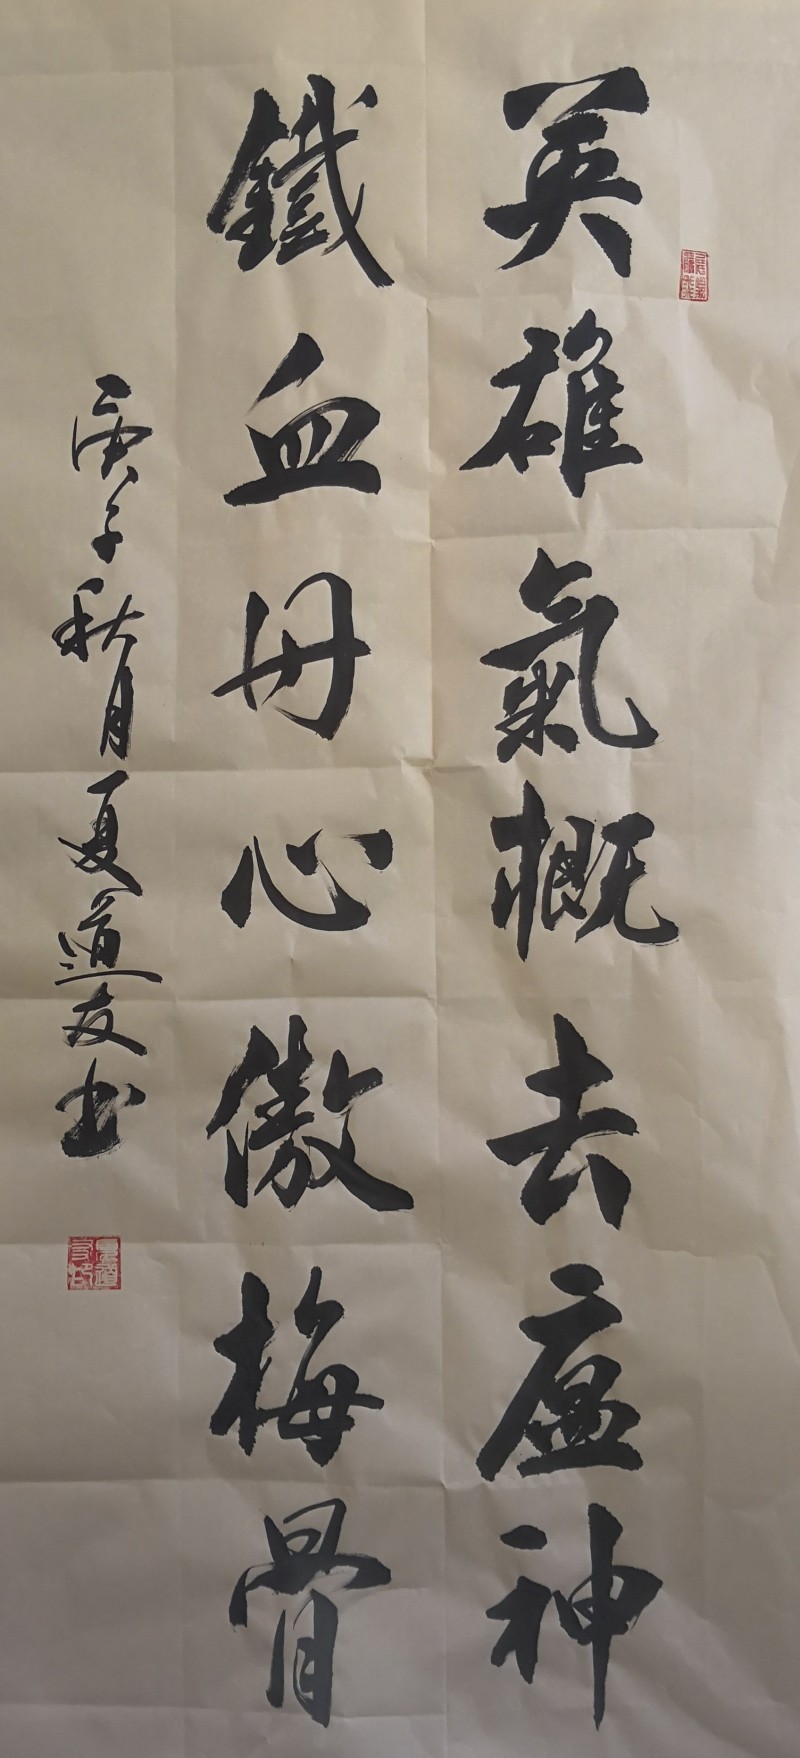 英雄氣概去瘟神
鐵血丹心傲梅骨
庚子秋月夏道友书